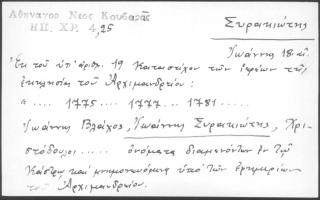 Ἀθήναγορ Νεος Κουβαρᾶς
ΗΠ. ΧΡ. 4, 25
Συρακιώτης
Ἰωάννης 18 αἰ.
Ἐκ τοῦ ὑπ' ἀριθμ. 19 Καταστίχου τῶν ἱερέων τῆς
ἐκκλησία τοῦ Ἀρχιμανδρείου:
" .... 1775 .... 1777 ... 1781 ....
Ἰωάννης Βλάχος, Ἰωάννης Συρακιώτης, Χρι-
στόδουλος .... ὀνόματα διαμενόντων ἐν τῷ
Κάστρῳ καὶ μνημονευόμενα ὑπὸ τῶν ἐφημερίων
τοῦ Ἀρχιμανδρείου.